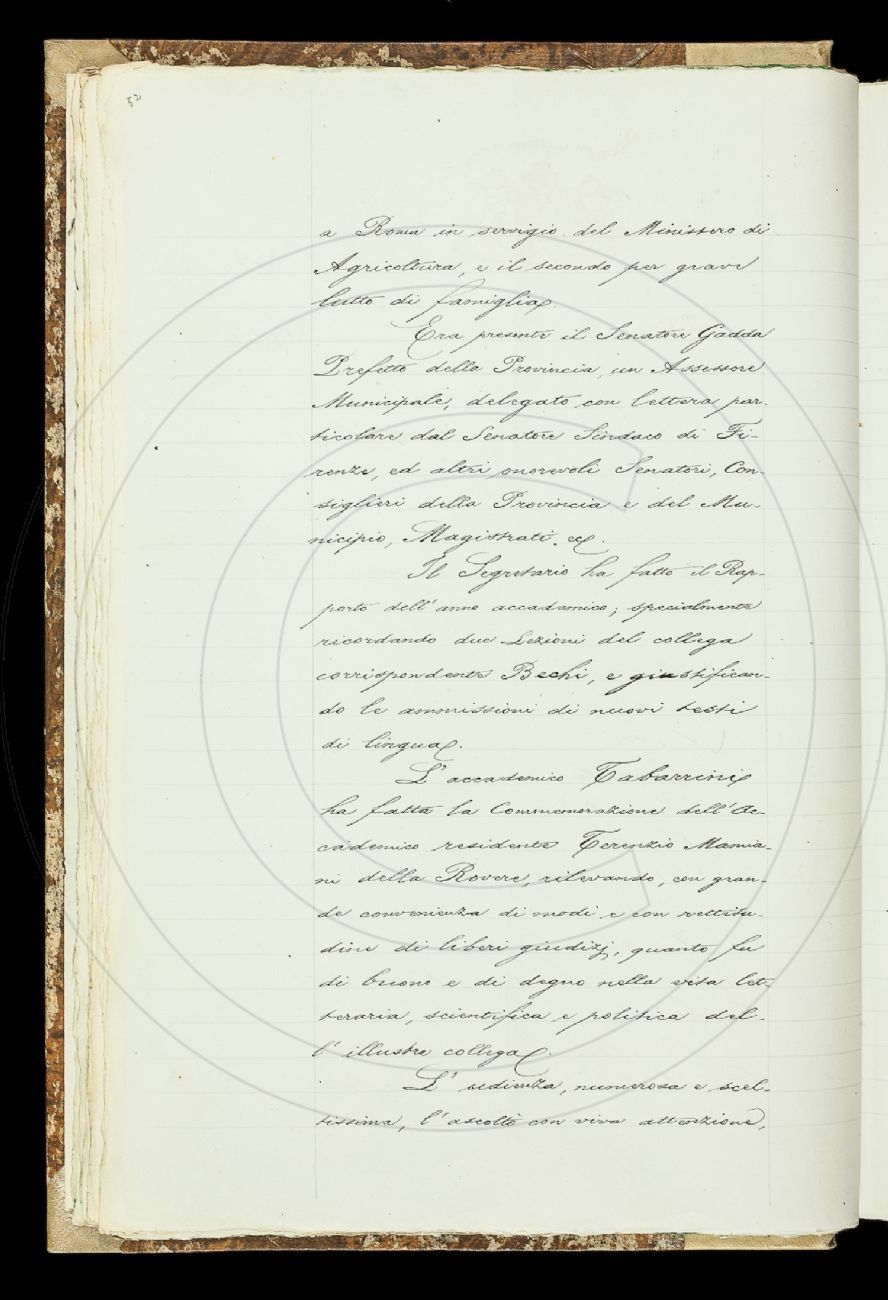 52
a Roma in servigio del Ministero di
Agricoltura, e il secondo per grave
lutto di famiglia.
Era presente il Senatore Gadda
Prefetto della Provincia, un Assessore
Municipale, delegato con lettera par-
ticolare dal Senatore Sindaco di Fi-
renze, ed altri onorevoli Senatori, Con-
siglieri della Provincia e del Mu-
nicipio, Magistrati. ec.
Il Segretario ha fatto il Rap-
porto dell'anno accademico; specialmente
ricordando due Lezioni del collega
corrispondente Bechi, e giustifican-
do le ammissioni di nuovi testi
di lingua.
L'accademico Tabarrini
ha fatta la Commemorazione dell'Ac-
cademico residente Terenzio Mamia-
ni della Rovere, rilevando, con gran-
de convenienza di modi e con rettitu-
dine di liberi giudizj, quanto fu
di buono e di degno nella vita let-
teraria, scientifica e politica del-
l'illustre collega.
L'udienza, numerosa e scel-
tissima, l'ascoltò con viva attenzione,